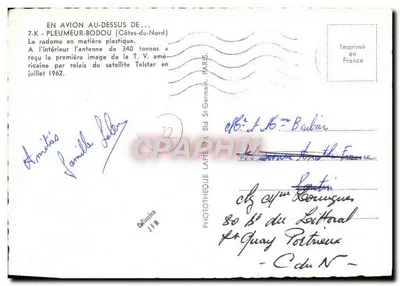 EN AVION AU-DESSUS DE...
7-K - PLEUMEUR-BODOU (Côtes-du-Nord)
Le radome en matière plastique.
A l'intérieur l'antenne de 340 tonnes a
reçu la première image de la T. V. amé-
ricaine par relais du satellite Telstar en
juillet 1962.
Imprimé
en
France
22
Amitiés
Famille
CPAPHIL
PHOTOTHEQUE LAPIE, Bld St-Germain, PARIS.
Collection
Mr et Mme Barbier
France
80 Bd du Littoral
St Quay Portrieux
C du N